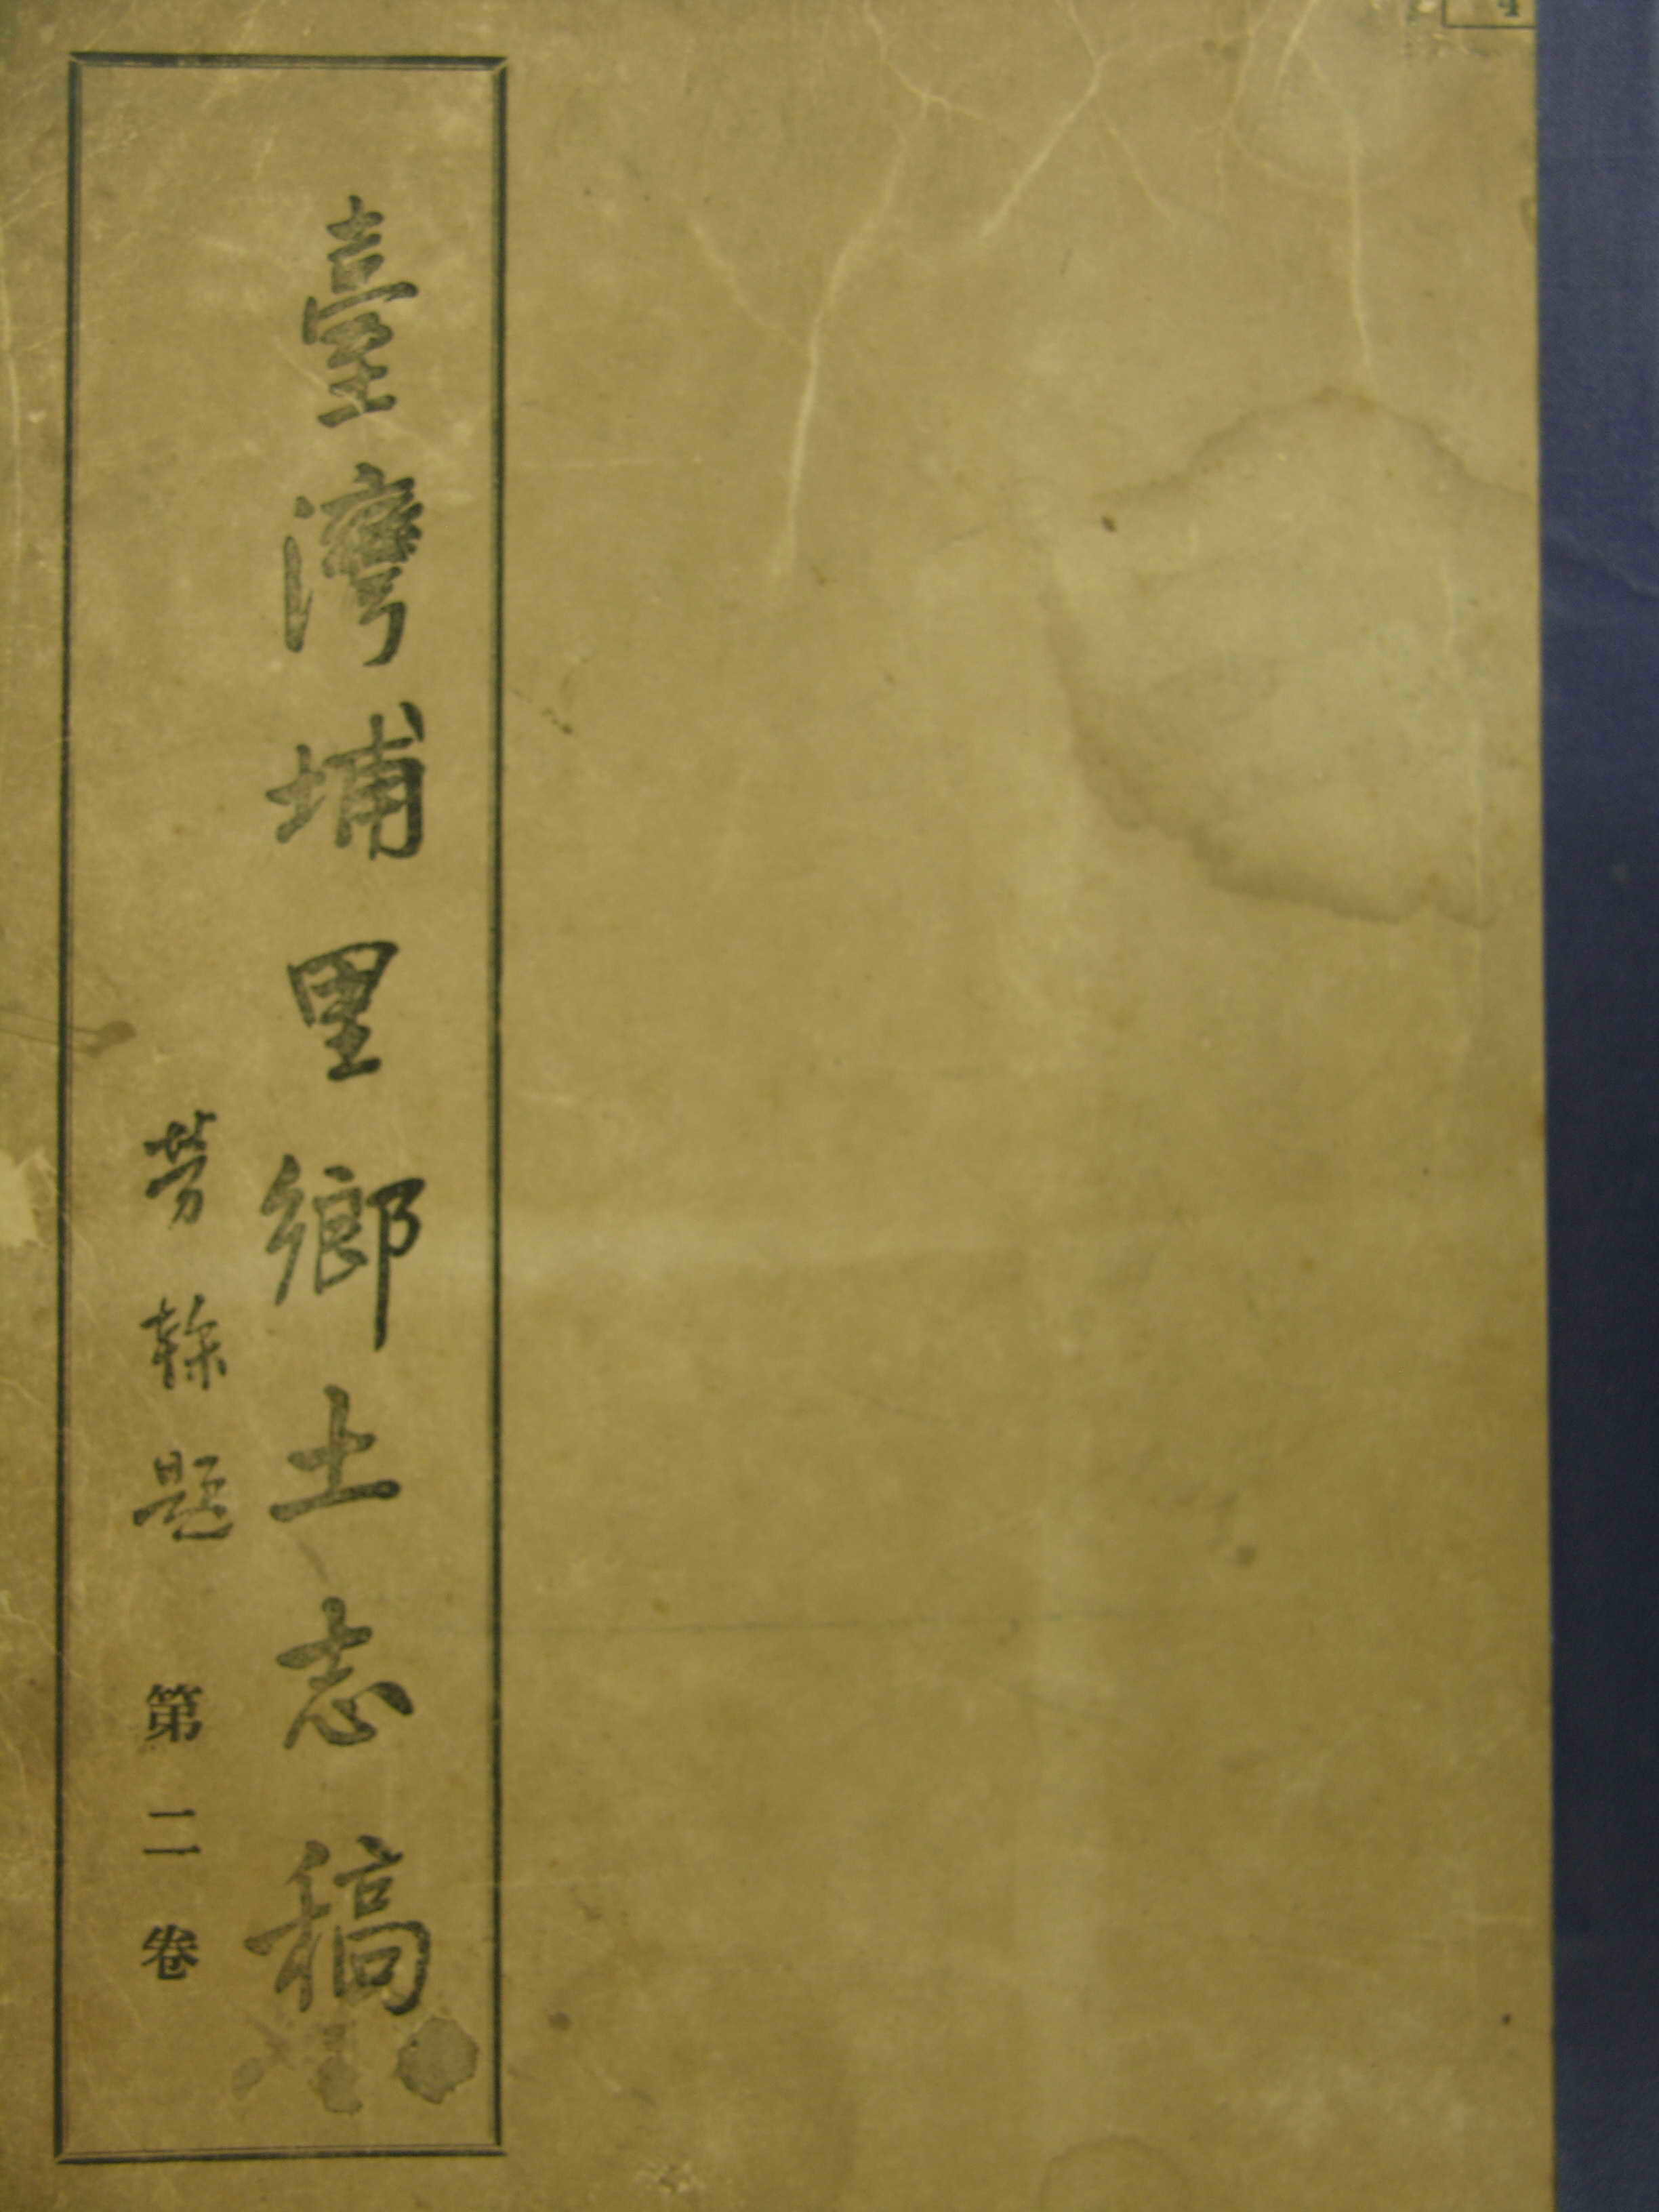 臺灣埔里鄉土志稿
勞榦題 第二卷